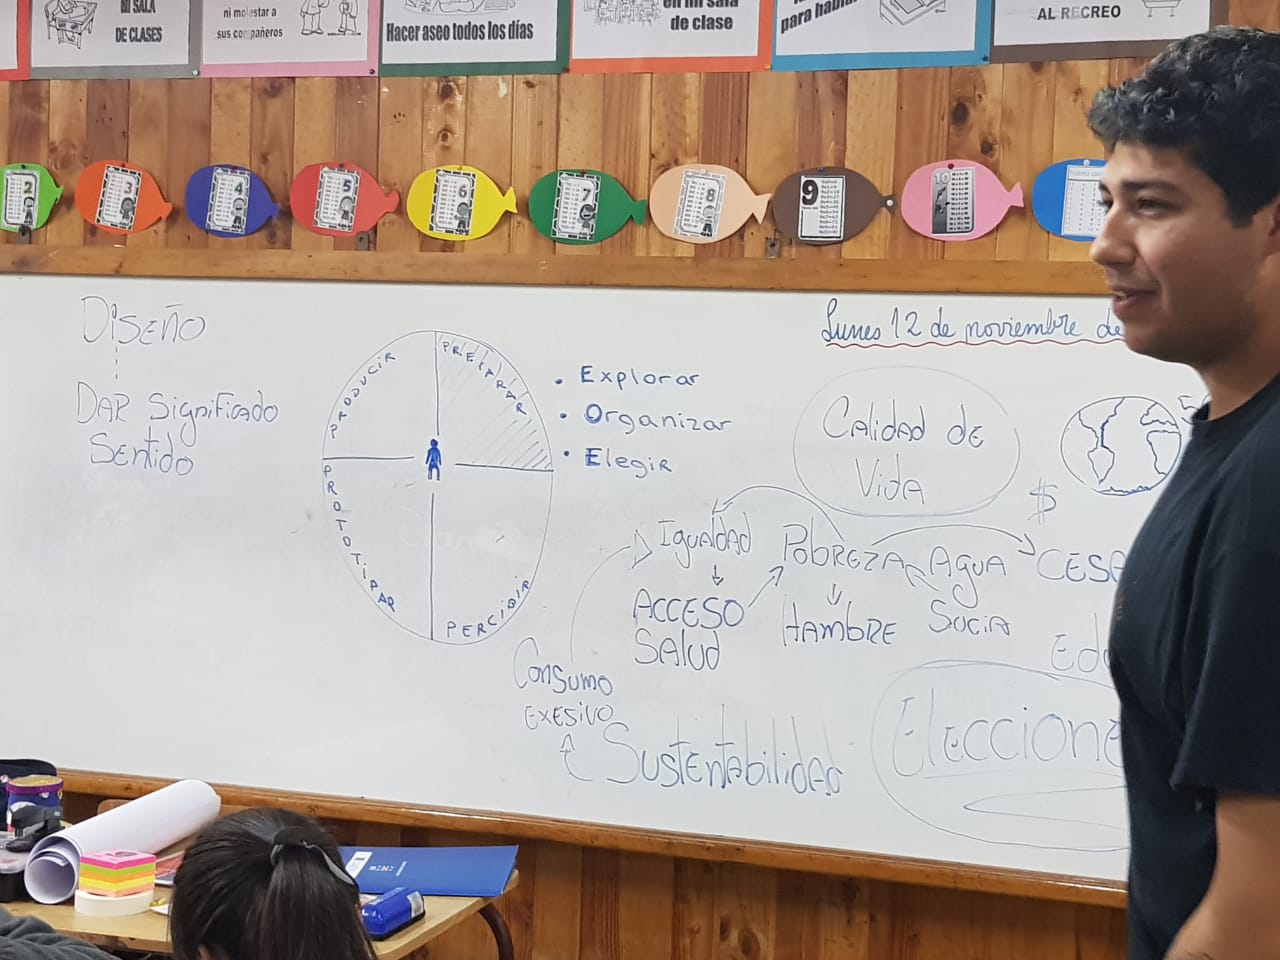 MI SALA
DE CLASES
ni molestar a
sus compañeros
Hacer aseo todos los días
en mi sala
de clase
para habla
AL RECREO
2
3
4
5
6
7
8
9
10
DISEÑO
DAR Significado
Sentido
PRODUCIR
PREPARAR
PROTOTIPAR
PERCIBIR
• Explorar
• Organizar
• Elegir
Lunes 12 de noviembre de
Calidad de
Vida
$
Igualdad
Pobreza
Agua
CESA
ACCESO
Salud
Hambre
Sucia
Edu
Consumo
Exesivo
Sustentabilidad
Eleccione